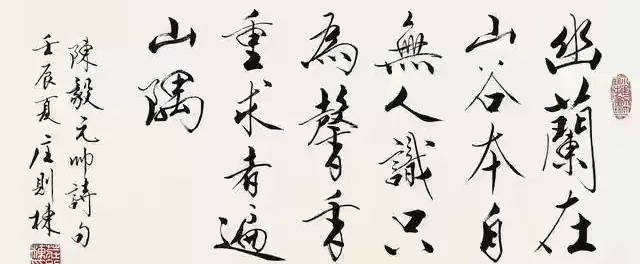 幽蘭在
山谷本自
無人識只
為馨香
重求者遍
山隅
陳毅元帥詩句
壬辰夏莊則棟